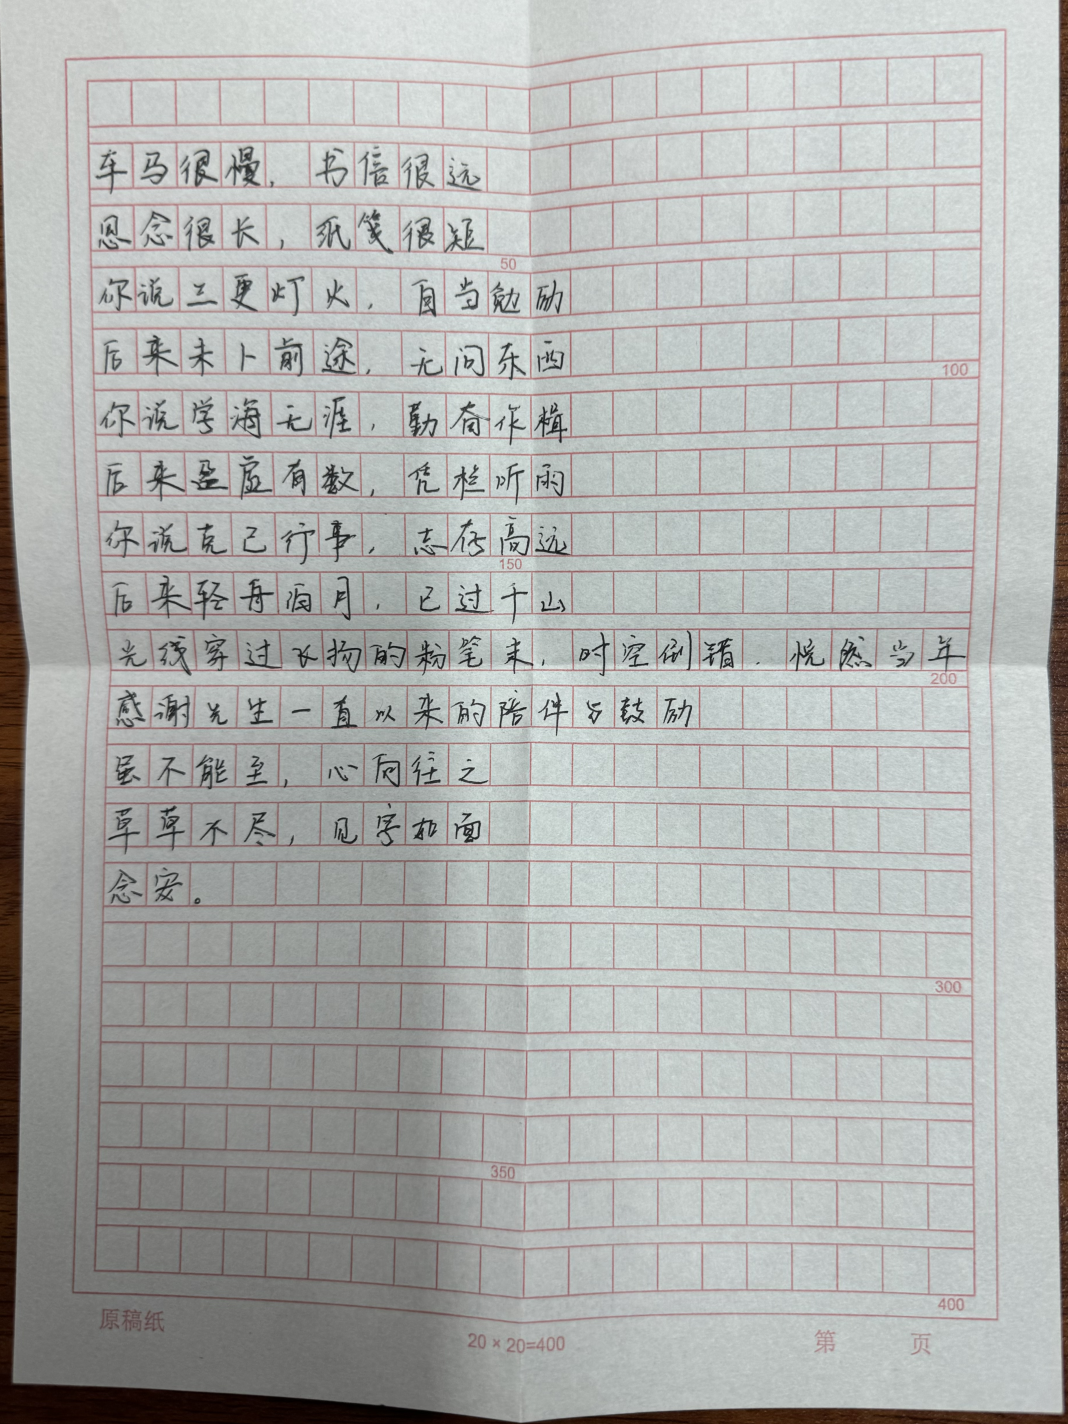 车马很慢，书信很远
思念很长，纸笺很短
50
你说三更灯火，自当勉励
后来未卜前途，无问东西
100
你说学海无涯，勤奋作楫
后来盈虚有数，凭栏听雨
你说克己行事，志存高远
150
后来轻舟泊月，已过千山
光线穿过飞扬的粉笔末，时空倒错，恍然当年
200
感谢先生一直以来的陪伴与鼓励
虽不能至，心向往之
草草不尽，见字如面
念安。
300
350
400
原稿纸
20×20=400
第 页